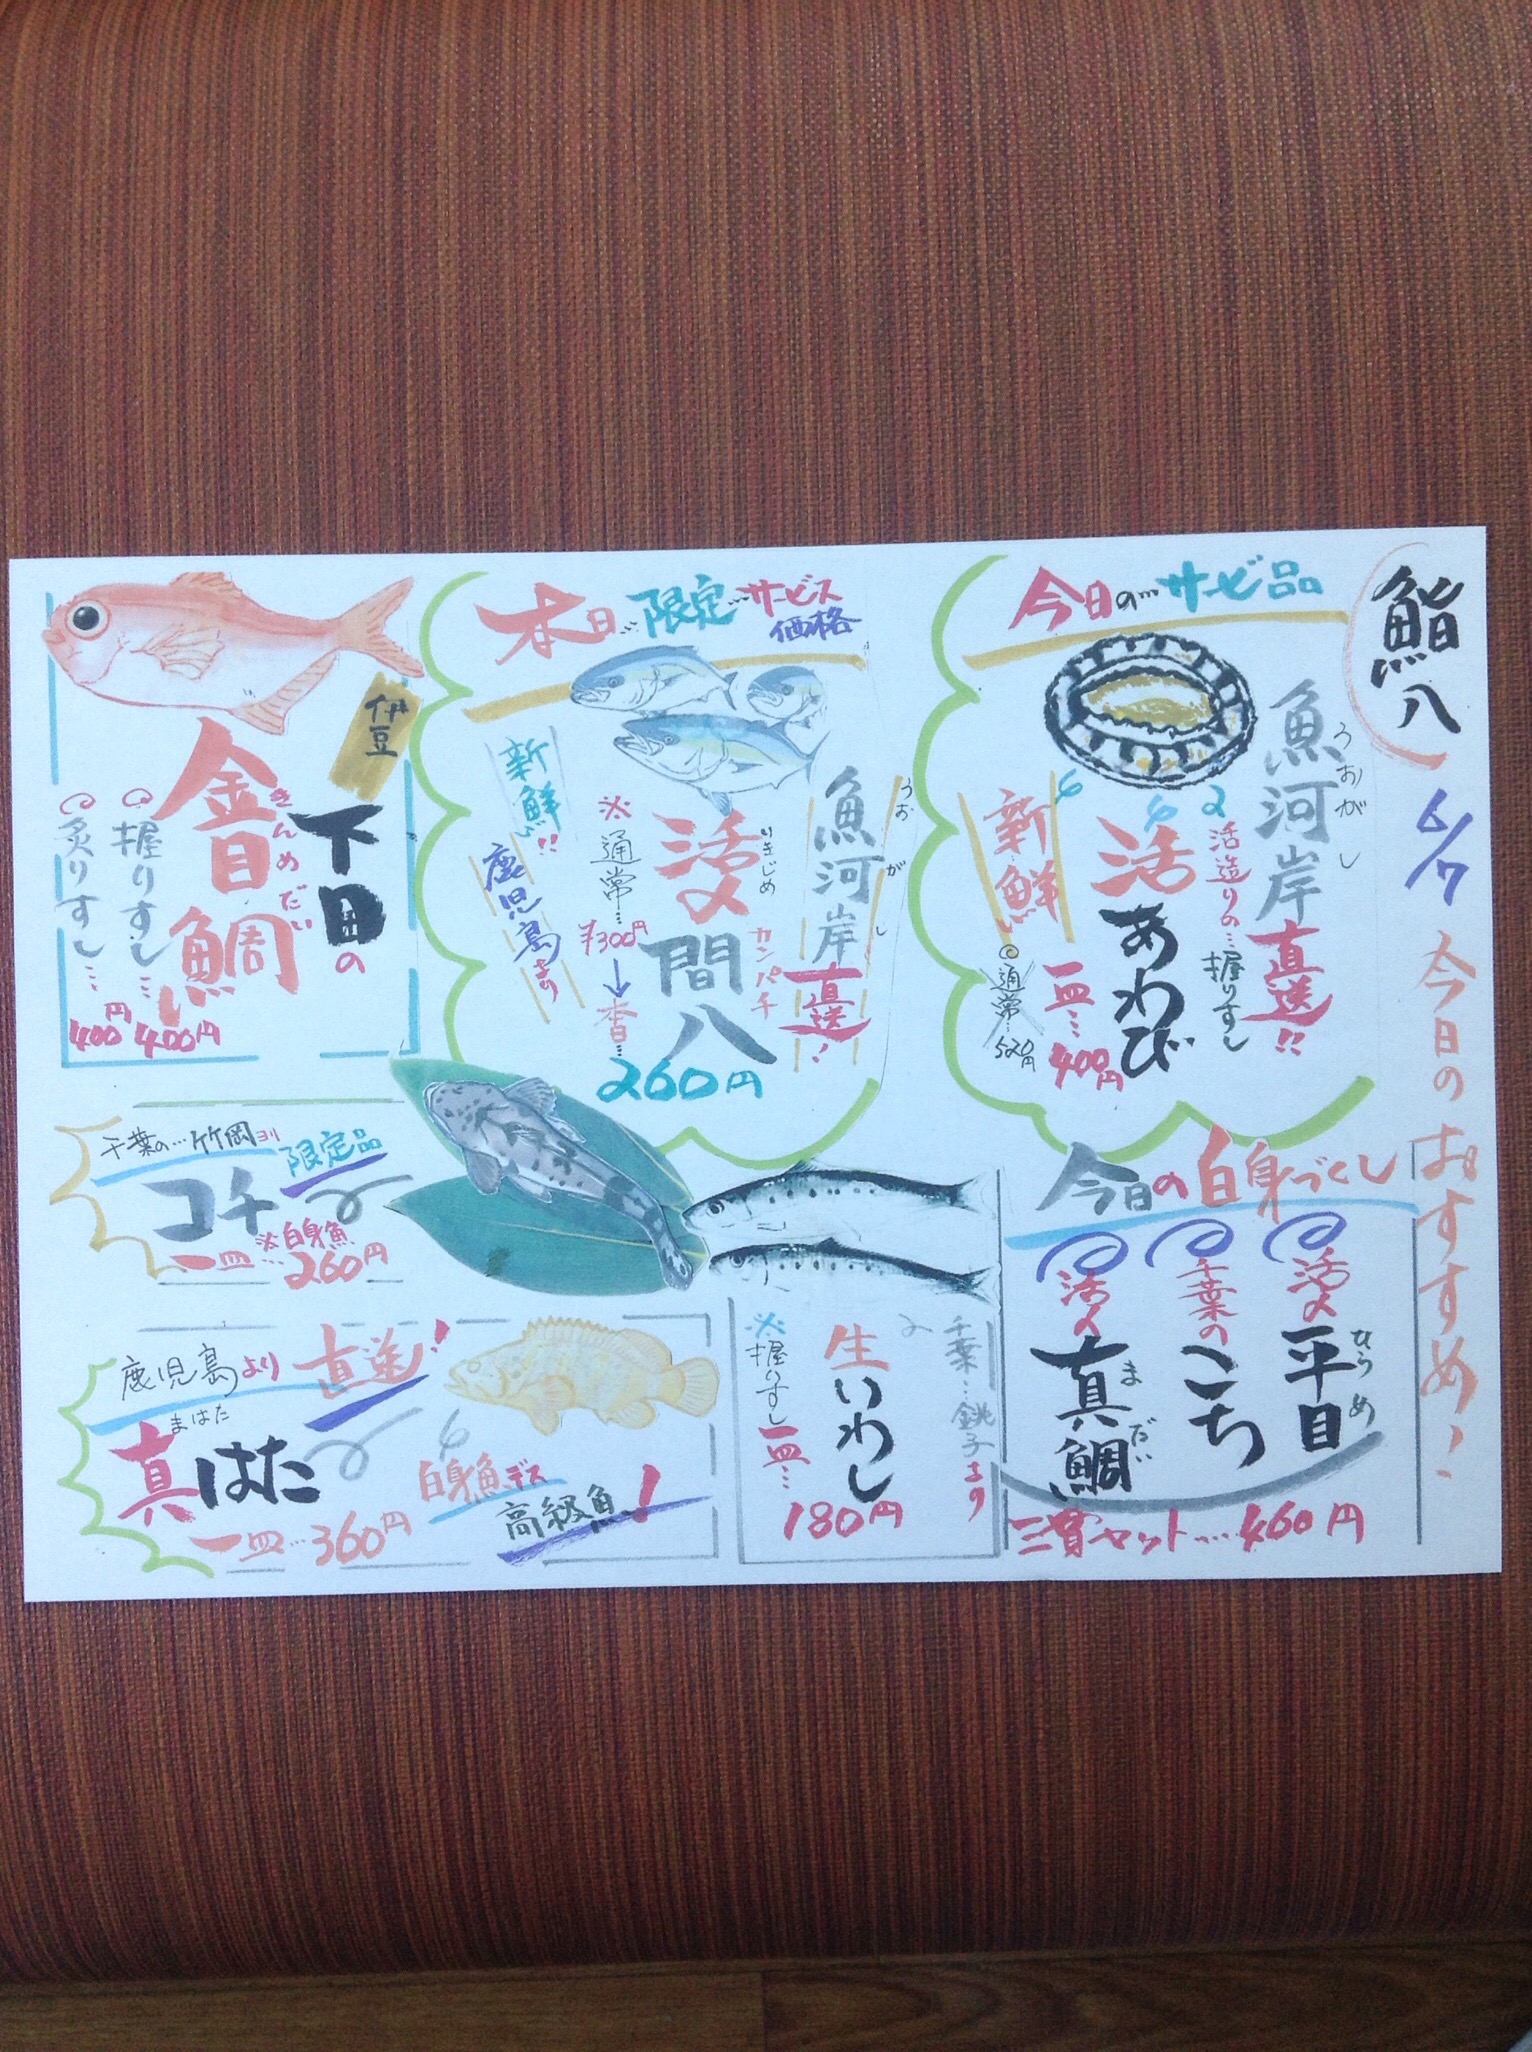 鮨八
6/7 今日のおすすめ!
今日の…サービ品
魚河岸
うおがし
直送!!
活造りの…握りすし
活あわび
新鮮い
一皿… 400円
通常…520円
本日…限定…サービス
価格
魚河岸
うおがし
直送!
活〆
いきじめ
間八
カンパチ
※通常…¥300円
↓
本日…
260円
新鮮!!
鹿児島より
伊豆
下田の
金目鯛
きんめだい
握りすし… 400円
炙りすし… 400円
今日の白身づくし
活〆平目
ひらめ
千葉のこち
活〆真鯛
まだい
三貫セット…460円
千葉…銚子より
生いわし
※握りすし一皿…
180円
千葉の…竹岡ヨリ
限定品
コチ
※白身魚
一皿…260円
鹿児島より
直送!
まはた
真はた
一皿…360円
白身魚デス
高級魚!